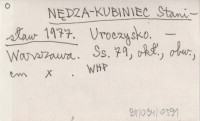 o
NĘDZA-KUBINIEC Stani-
sław 1977. Uroczysko. —
Warszawa. Ss. 79, okł., obw.,
cm x . WHP